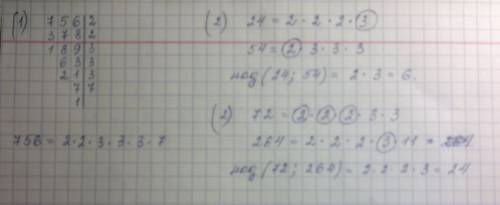 (1) 756|2
378|2
189|3
63|3
21|3
7|7
1|
756 = 2·2·3·3·3·7
(2) 24 = 2·2·2·3
54 = 2·3·3·3
нод(24; 54) = 2·3 = 6.
(2) 72 = 2·2·2·3·3
264 = 2·2·2·3·11
нод(72; 264) = 2·2·2·3 = 24